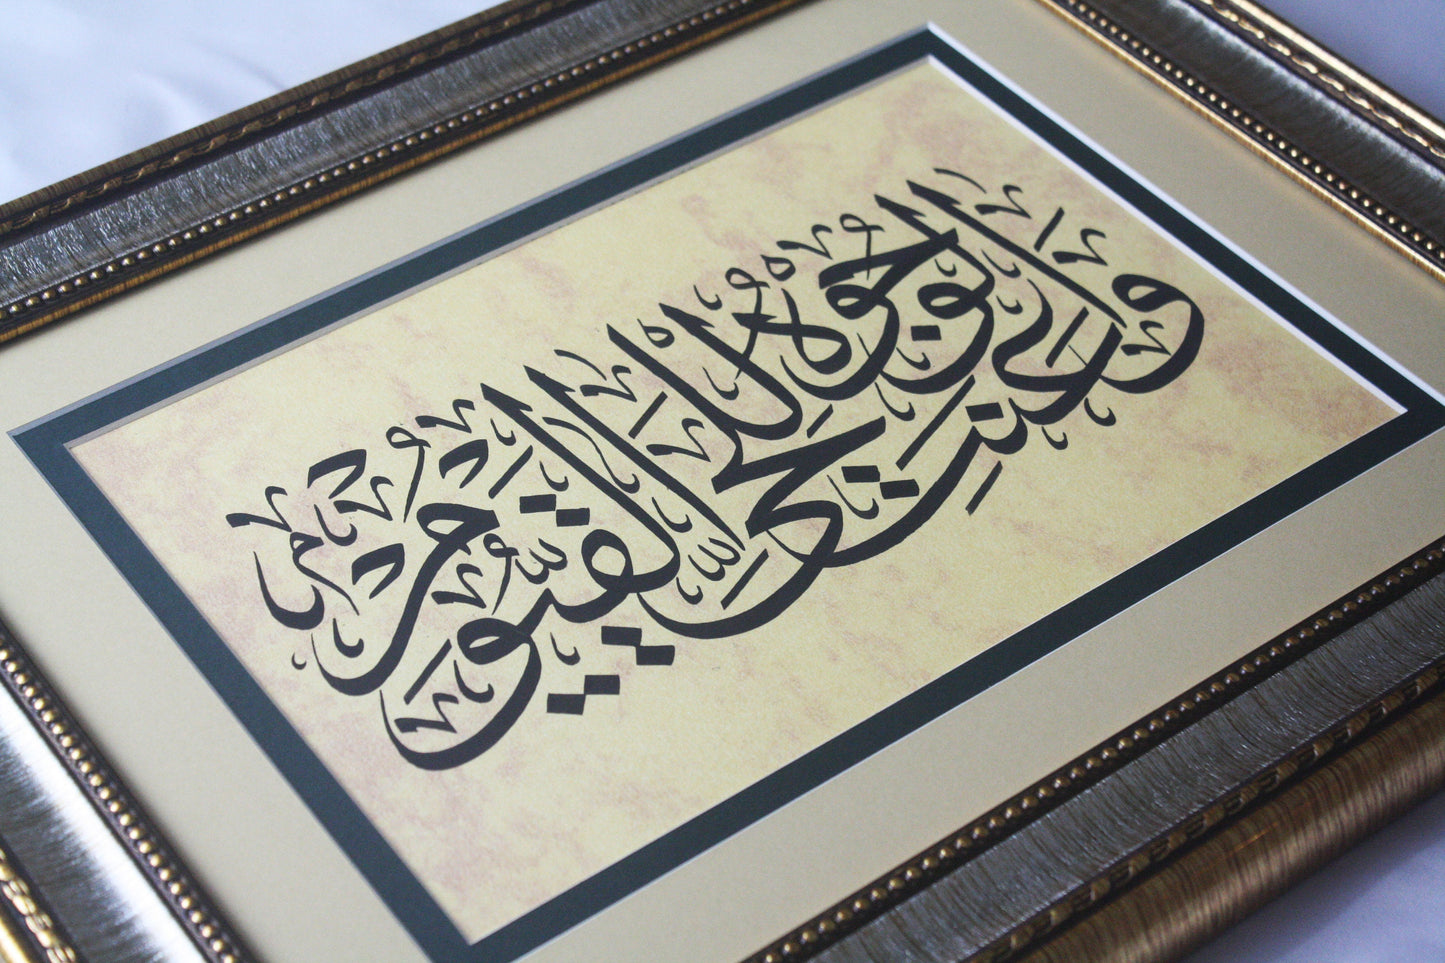 وَعَنَتِ الْوُجُوهُ لِلْحَيِّ الْقَيُّومِ